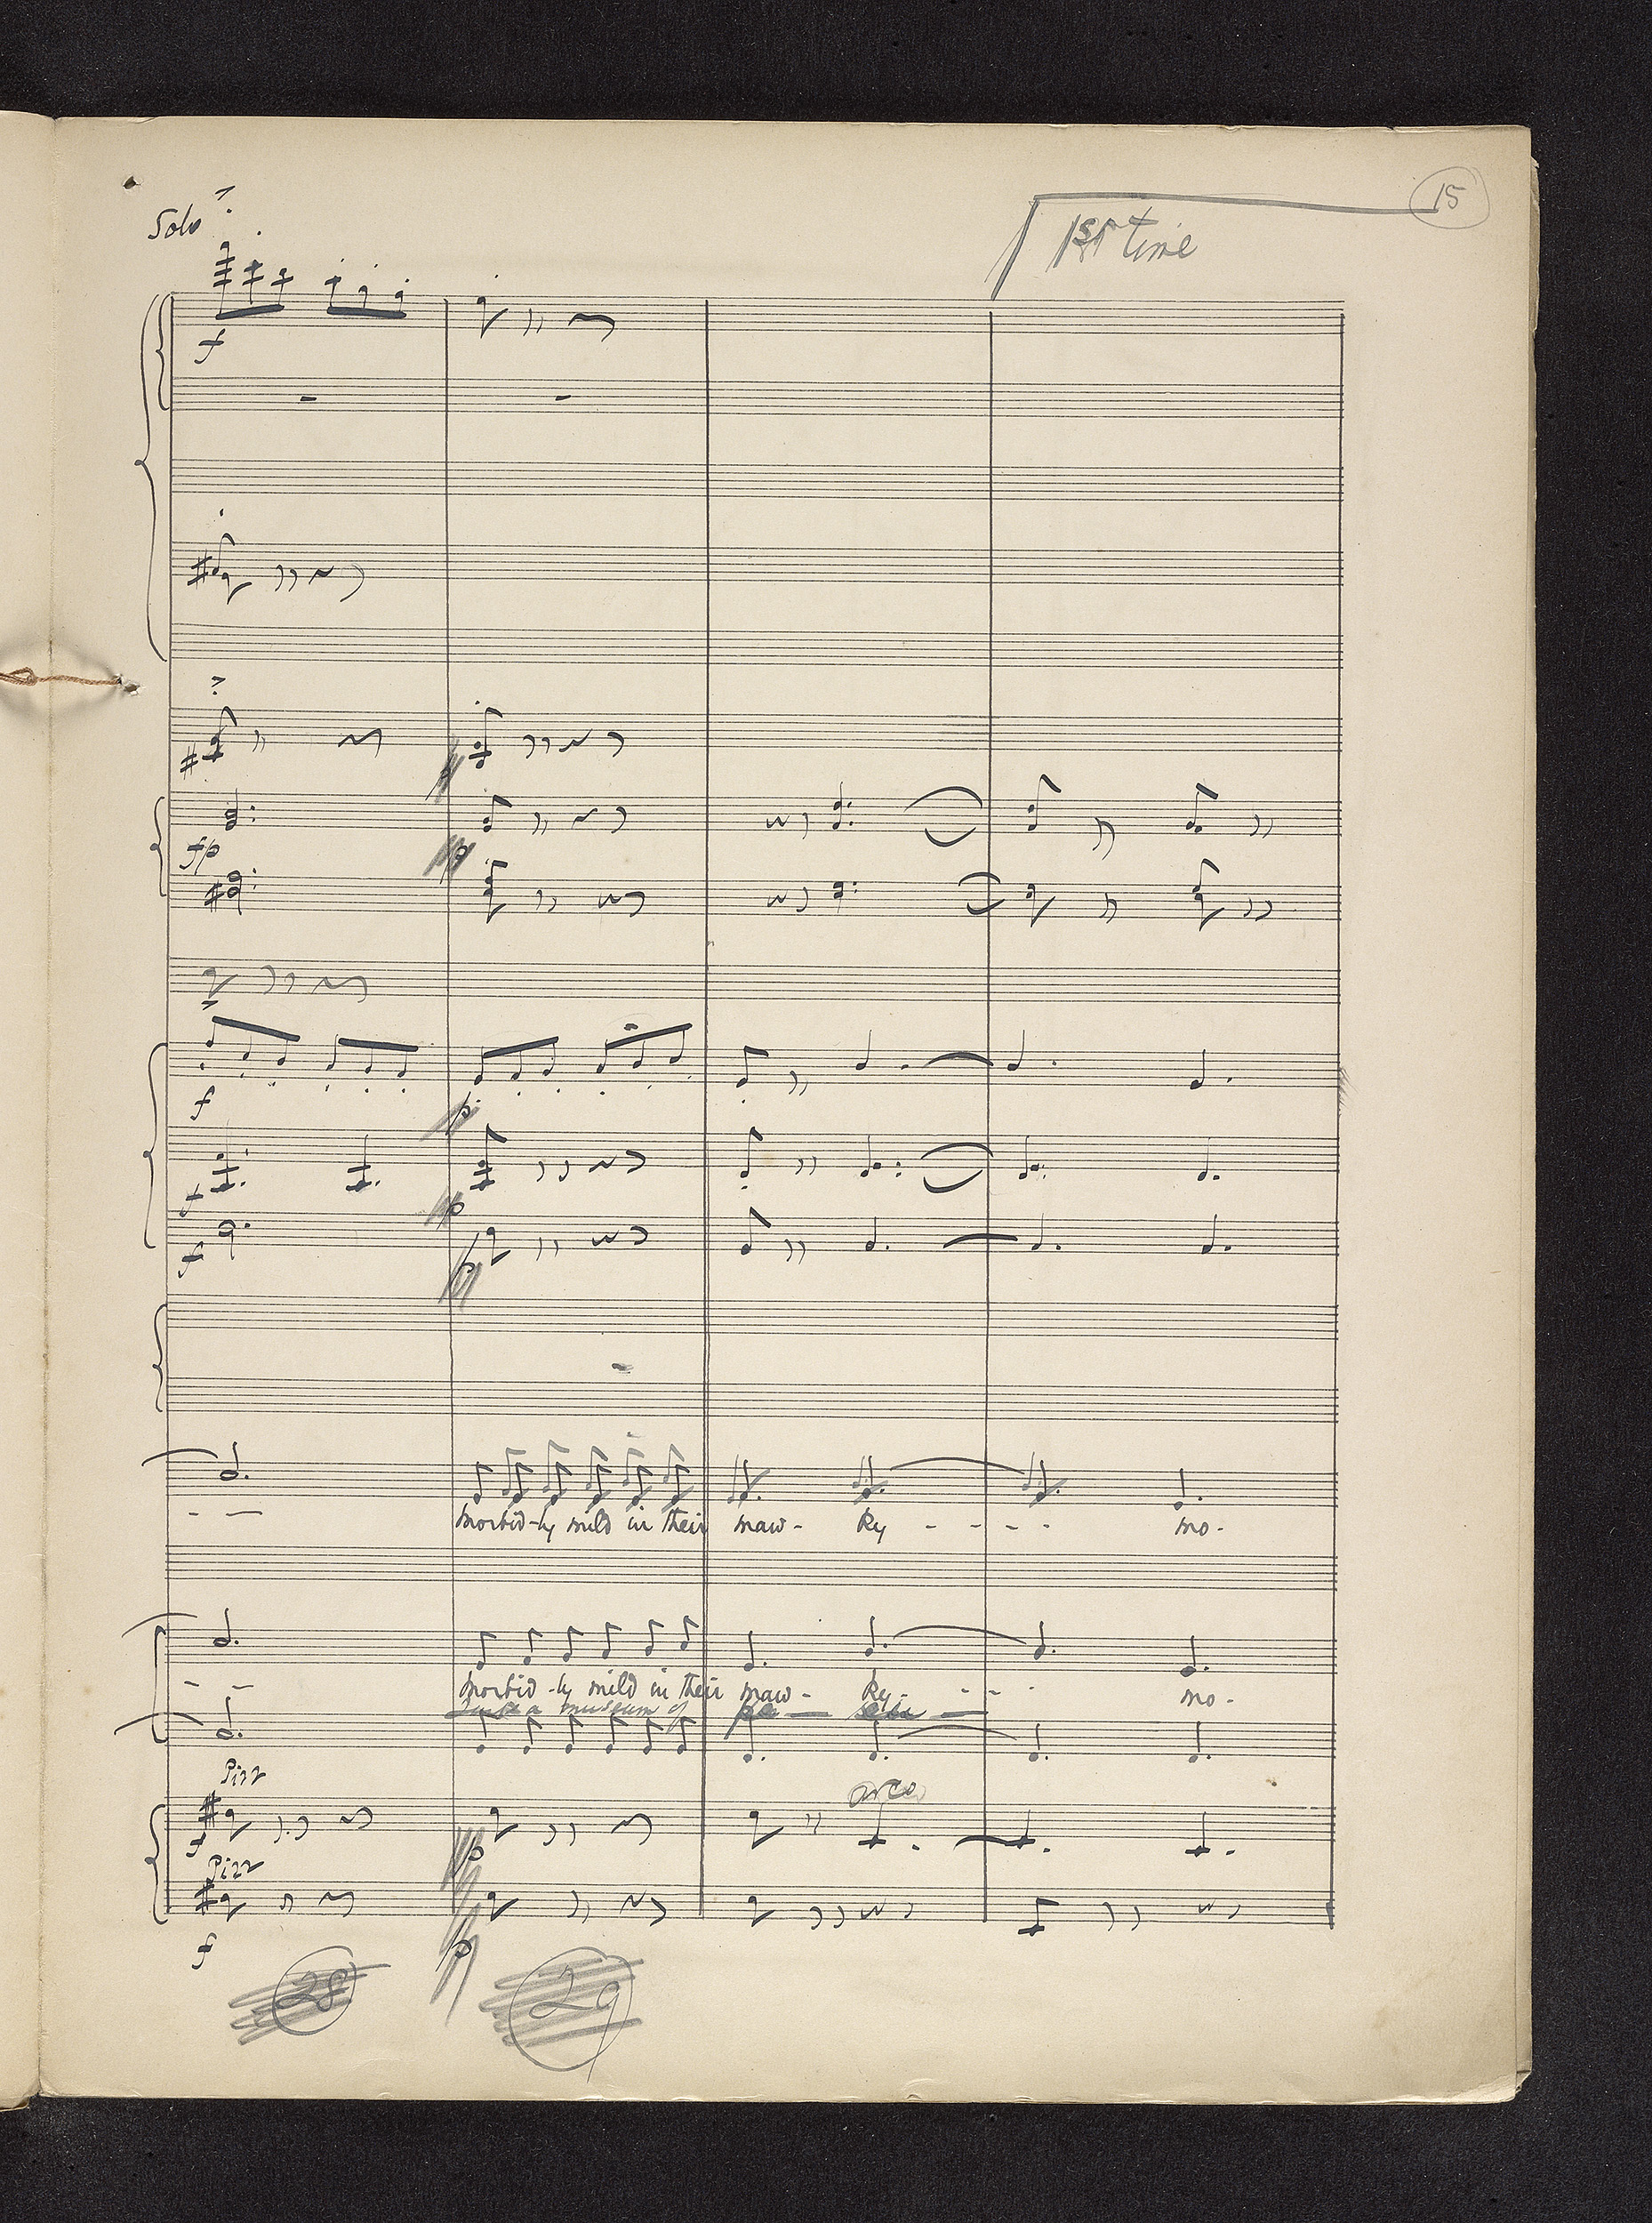 15
Solo
1st time
f
fp
p
f
p
f
p
f
p
morbid-ly mild in their maw- ky - - - - mo-
morbid-ly mild in their maw- ky- - - - mo-
museum of
Pizz
arco
f
p
Pizz
f
p
28
29